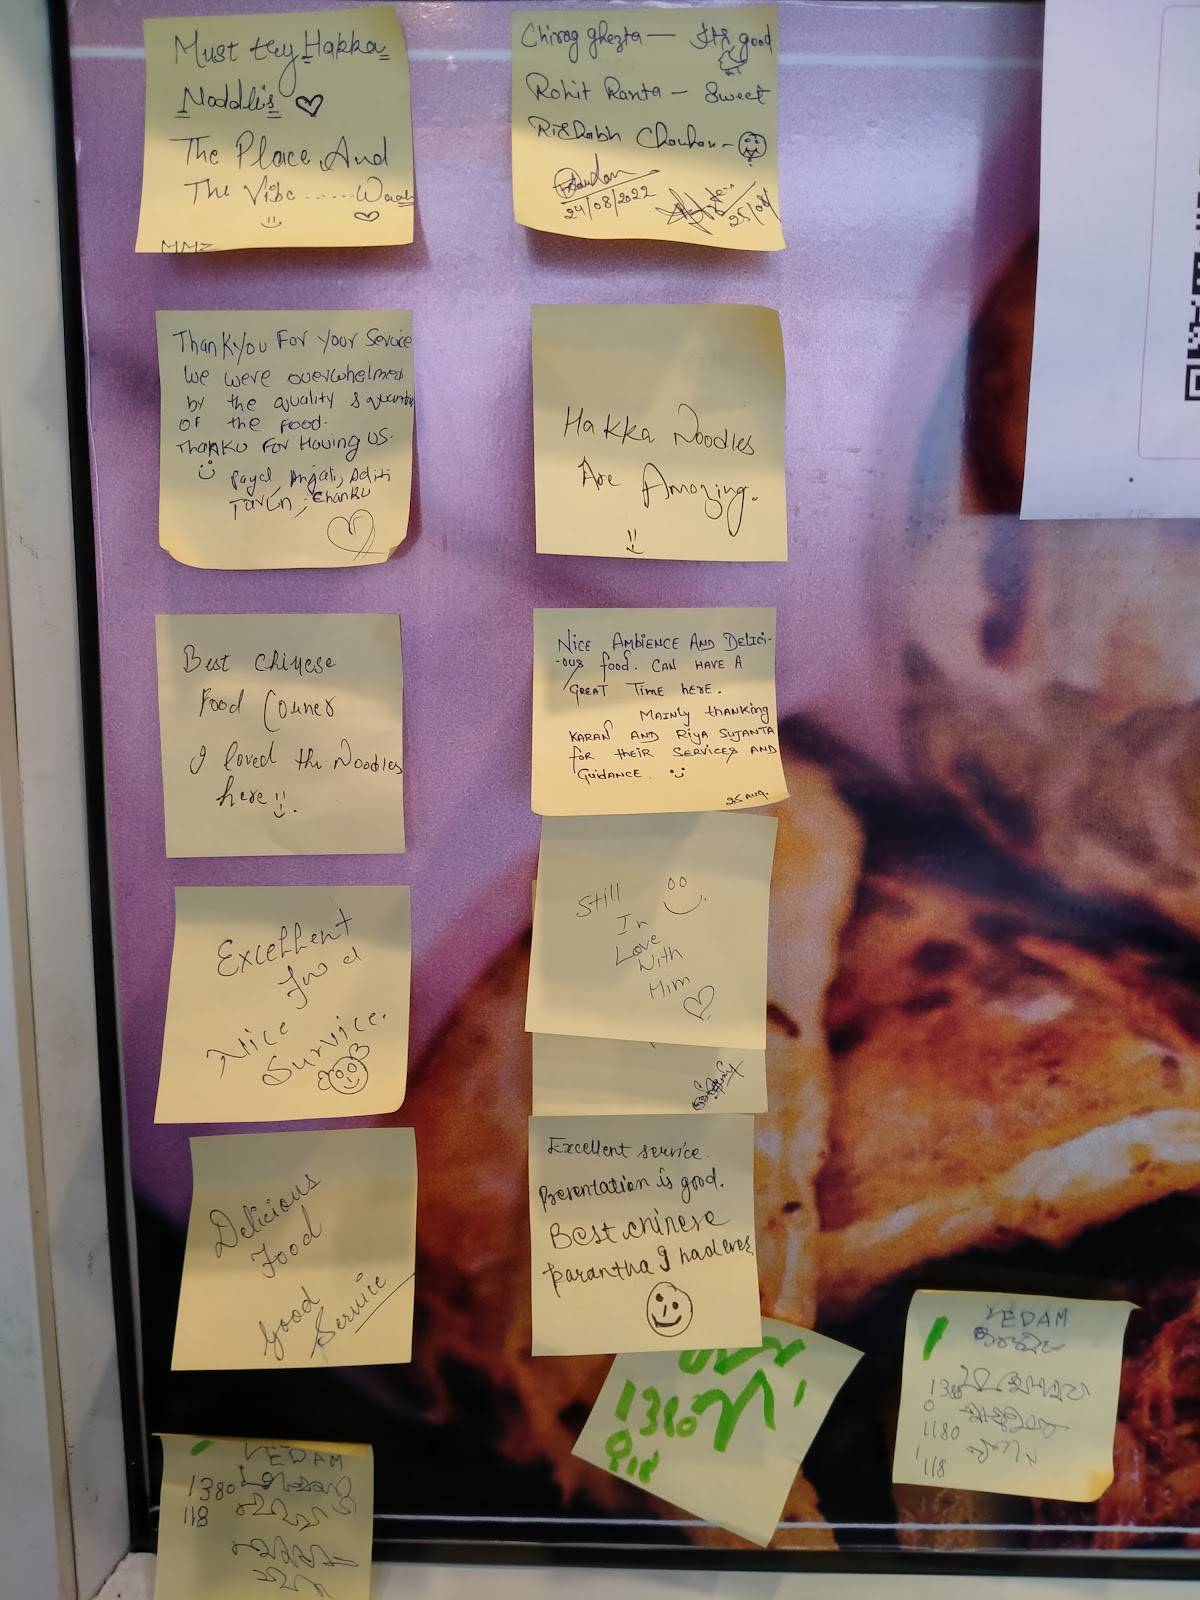 Must try Hakka
Noddlis
The Place And
The Vibe ...... Waah
MMZ
Chirag ghezta — Its good
Rohit Ranta — Sweet
Rishabh Chauhan -
24/08/2022
25/08/
Thankyou For Your Service
We were overwhelmed
by the quality & quantity
of the food.
Thanku For Having US.
Payal, Anjali, Aditi
Tarun, Chanku
Hakka Noodles
Are Amazing.
Best Chinese
Food Couner
I loved the Noodles
here
Nice Ambience And Delici-
-ous food. Can have a
great time here.
Mainly thanking
Karan and Riya Sujanta
for their services and
guidance.
25 Aug.
Excellent
food
Nice
Survice.
Still
In
Love
With
Him
Delicious
Food
Good
Service
Excellent service.
Presentation is good.
Best chinese
parantha I had ever
1380
VEDAM
1380
118
VEDAM
1380
0
1180
1
118